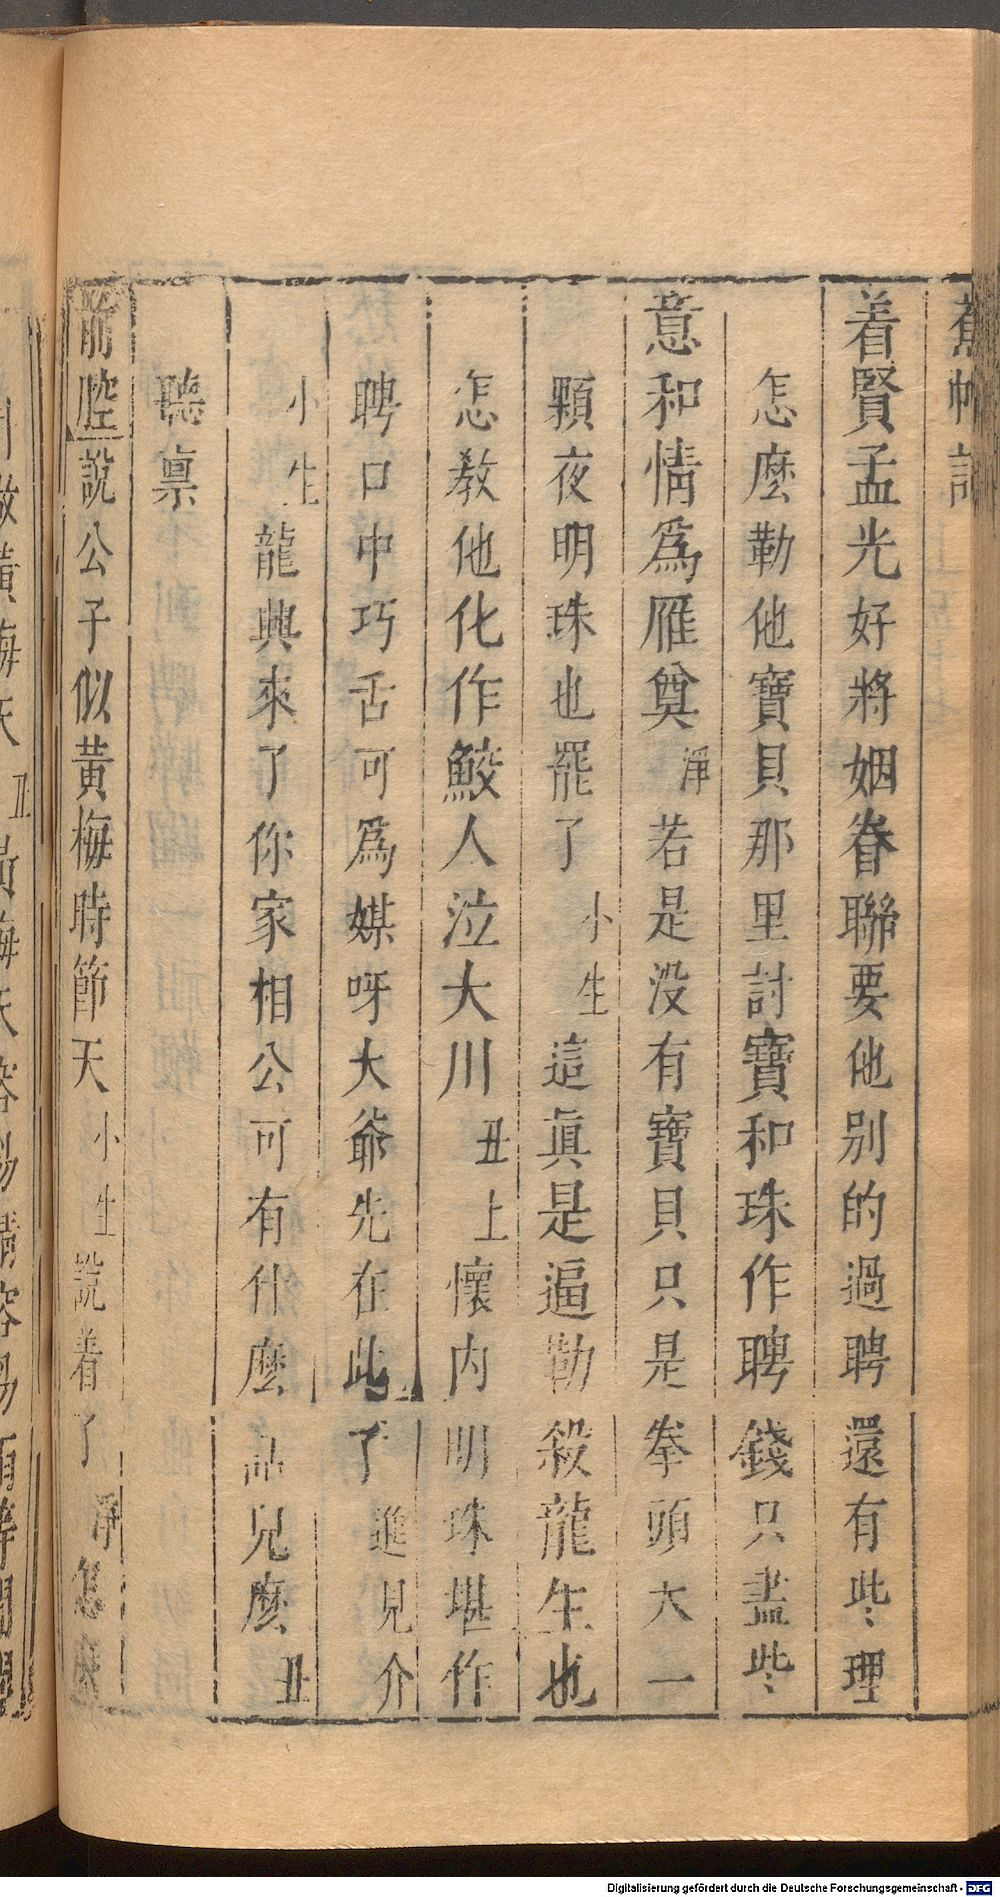 蕉帕記
着賢孟光好將姻眷聯要他别的過聘還有些理
怎麽勒他寶貝那里討寶和珠作聘錢只盡些
意和情爲雁奠淨若是没有寶貝只是拳頭大一
顆夜明珠也罷了小生這眞是逼勒殺龍生也
怎教他化作鮫人泣大川丑上懷内明珠堪作
聘口中巧舌可爲媒呀大爺先在此了進見介
小生龍興來了你家相公可有什麽話兒麽丑
聽禀
前腔說公子似黄梅時節天小生說着了淨怎麽
黄梅天丑黄梅天容易晴容易
Digitalisierung gefördert durch die Deutsche Forschungsgemeinschaft - DFG